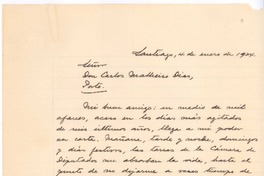 Santiago, 4 de enero de 1924.
Señor
Don Carlos Malheiro Dias,
Porto.
Mi buen amigo: en medio de mil
afanes, acaso en los días más agitados
de mis últimos años, llega a mi poder
su carta. Mañana, tarde y noche, domingos y
días festivos, las tareas de la Cámara de
Diputados me absorben la vida, hasta el
punto de no dejarme a veces tiempo de